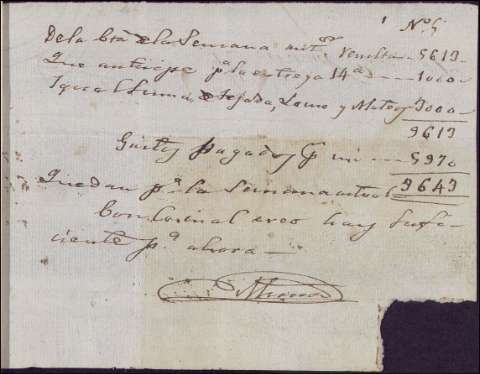 1 Nº 5
De la Cta de la Semana antor resulta 5613
Que anticipe pª la entrega 14ª 1000
Igual Suma, de Tejada, Lomo y Mateo 3000
9613
Gastos pagados p mi 5970
Quedan pª la Semana actual 3643
Con lo cual creo hay sufi-
ciente pª ahora